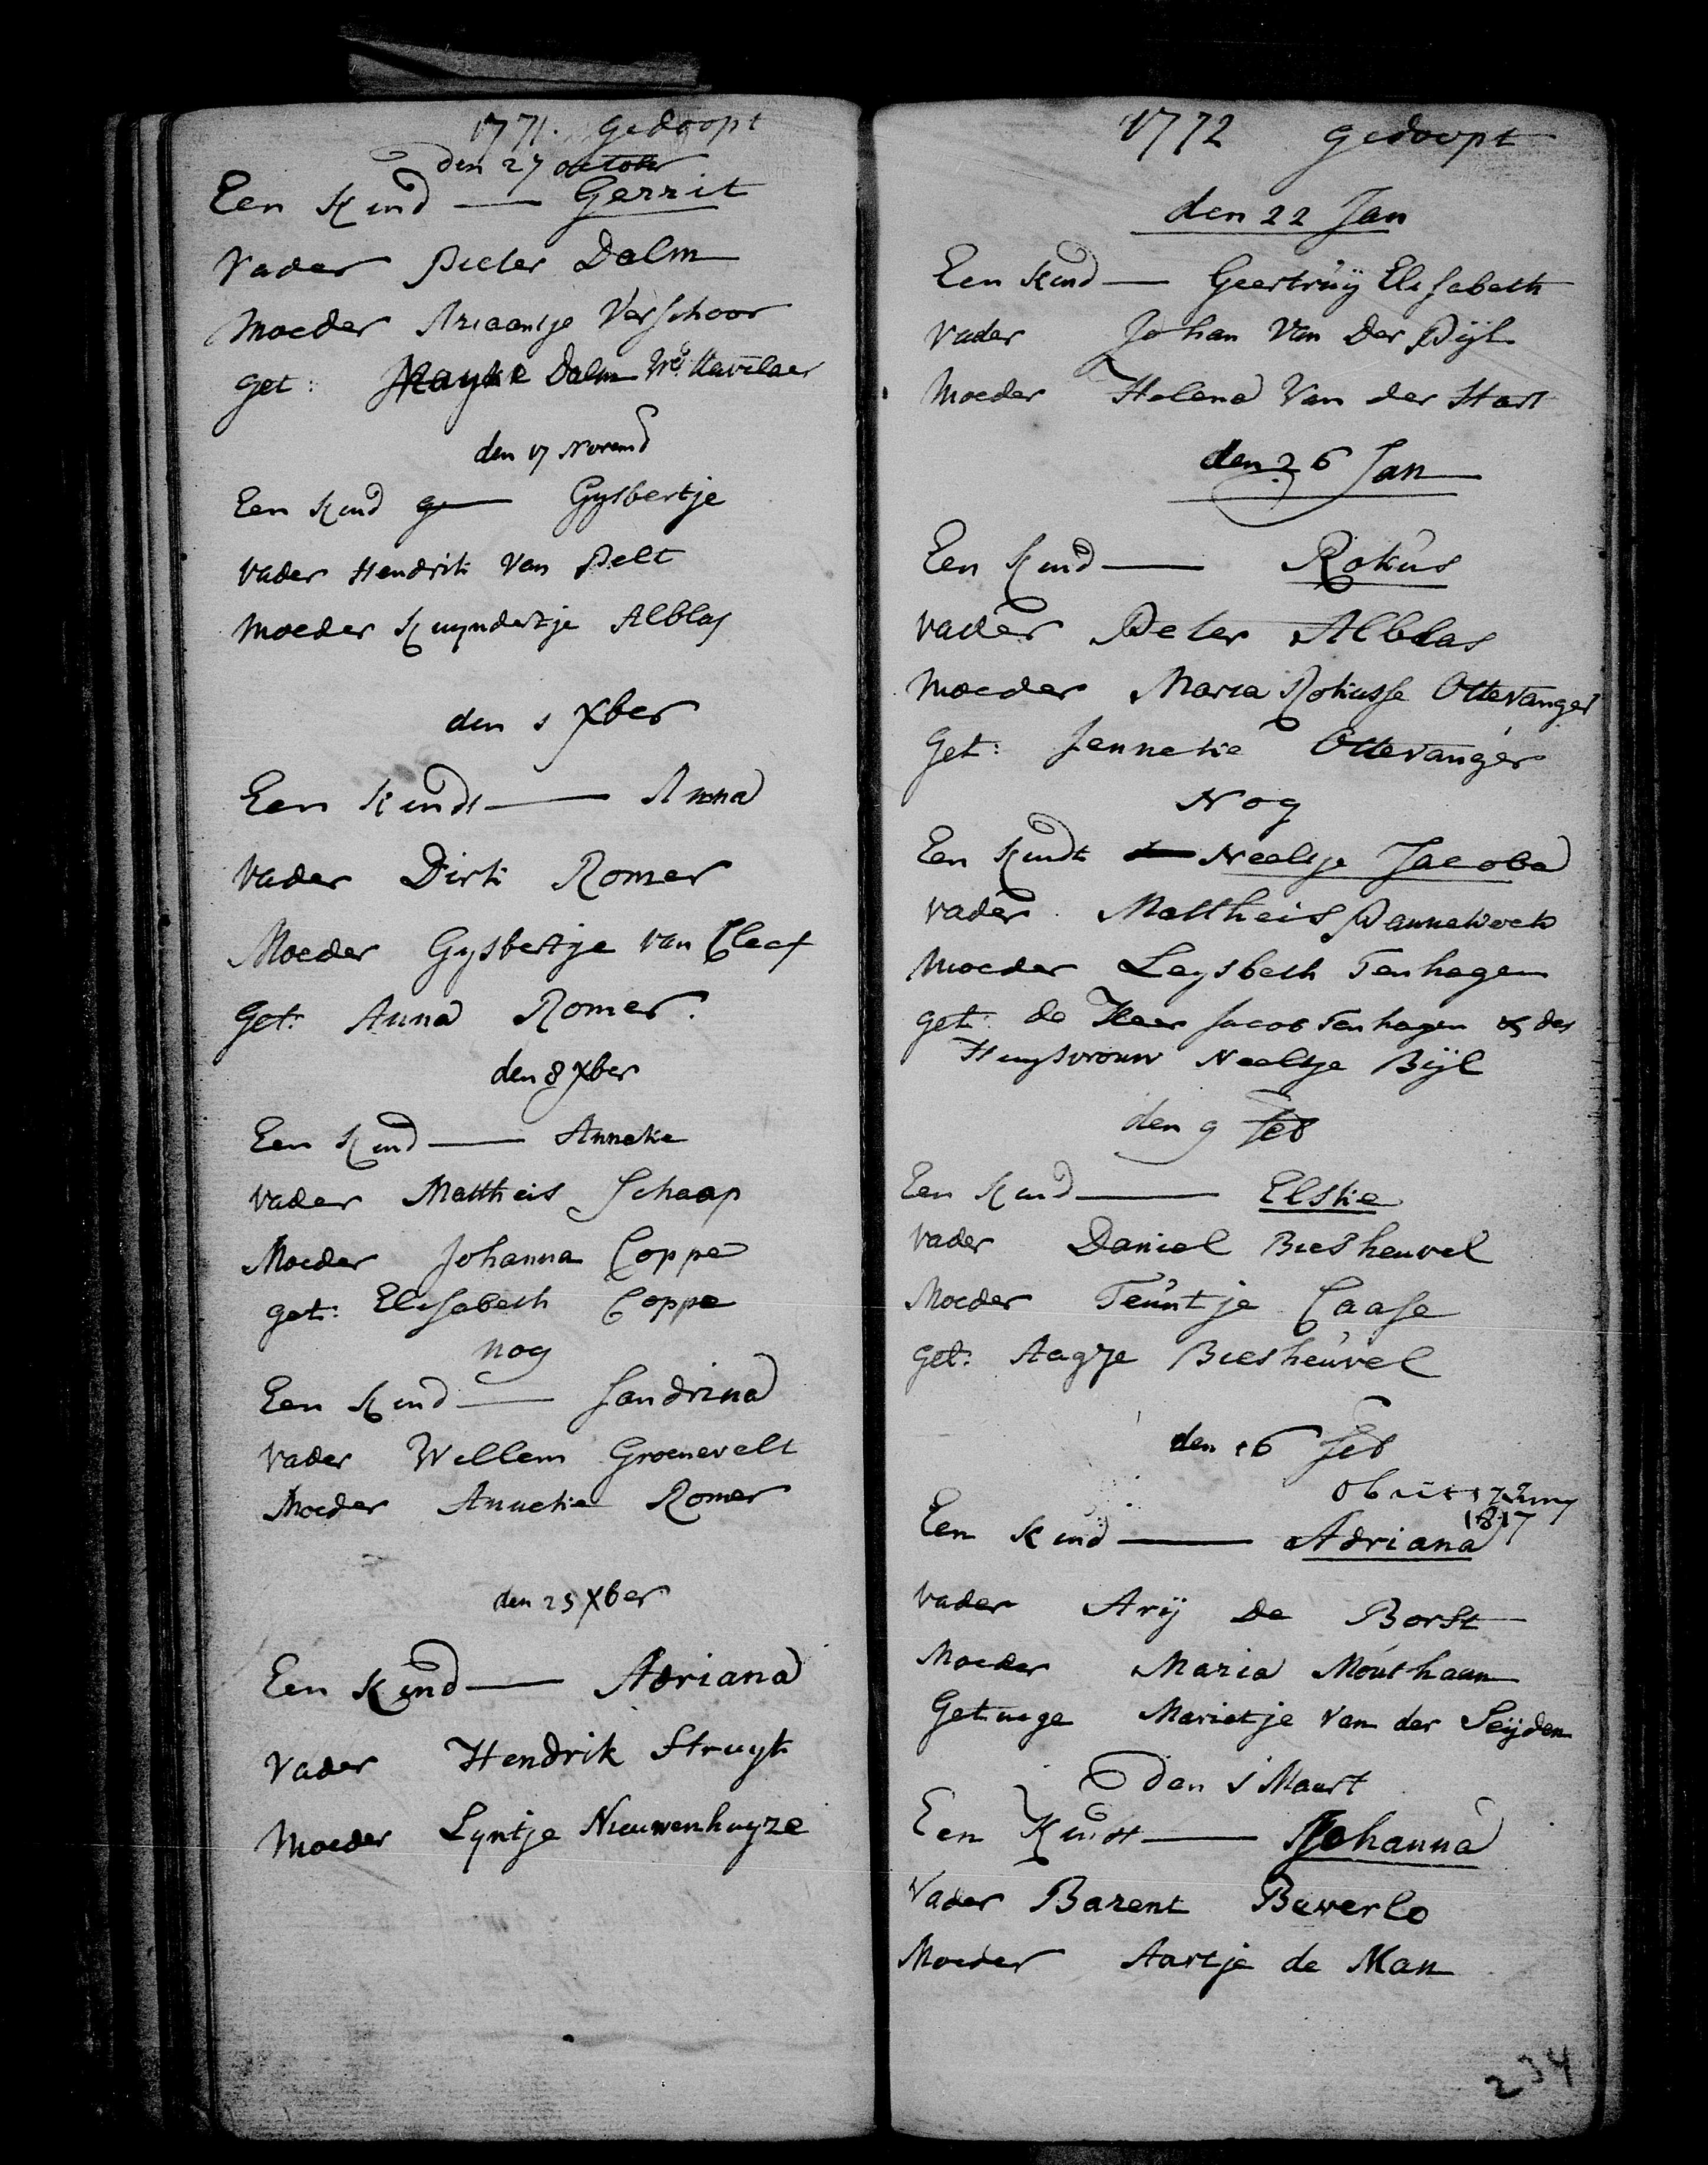 1771. gedoopt
den 27 october
Een Kind — Gerrit
Vader Pieter Dalm
Moeder Ariaantje Verschoor
get: Mayke Dalm Wed. Havelaer
den 17 Novemb
Een Kind Gysbertje
Vader Hendrik Van Pelt
Moeder Kuyndertje Alblas
den 1 Xber
Een Kindt — Anna
Vader Dirk Romer
Moeder Gysbertje van Cleef
Get: Anna Romer.
den 8 Xber
Een Kind — Anneke
Vader Mattheis Schaap
Moeder Johanna Coppe
get: Elisabeth Coppe
nog
Een Kind — Sandrina
Vader Willem Groenevelt
Moeder Anneke Romer
den 25 Xber
Een Kind — Adriana
Vader Hendrik Struyk
Moeder Lyntje Nieuwenhuyze
1772 gedoopt
den 22 Jan
Een Kind — Geertruij Elisabeth
Vader Johan Van Der Pijl
Moeder Helena Van der Start
den 26 Jan
Een Kind — Rokus
Vader Peter Alblas
Moeder Maria Rokusse Ottevanger
Get: Jenneke Ottevanger
Nog
Een Kindt Neeltje Jacoba
Vader Mattheis Pannekoek
Moeder Leysbeth Tenhagen
get: de Heer Jacob Tenhagen & des
Huysvrouw Neeltje Bijl
den 9 feb
Een Kind — Elske
Vader Daniel Biesheuvel
Moeder Teuntje Caase
Get: Aagje Biesheuvel
den 16 feb
obiit 17
1817
Een Kind — Adriana
Vader Arij De Borst
Moeder Maria Mouthaan
Getuige Marietje Van der Seijden
den 1 Maart
Een Kindt — Johanna
Vader Barent Beverlo
Moeder Aartje de Man
234